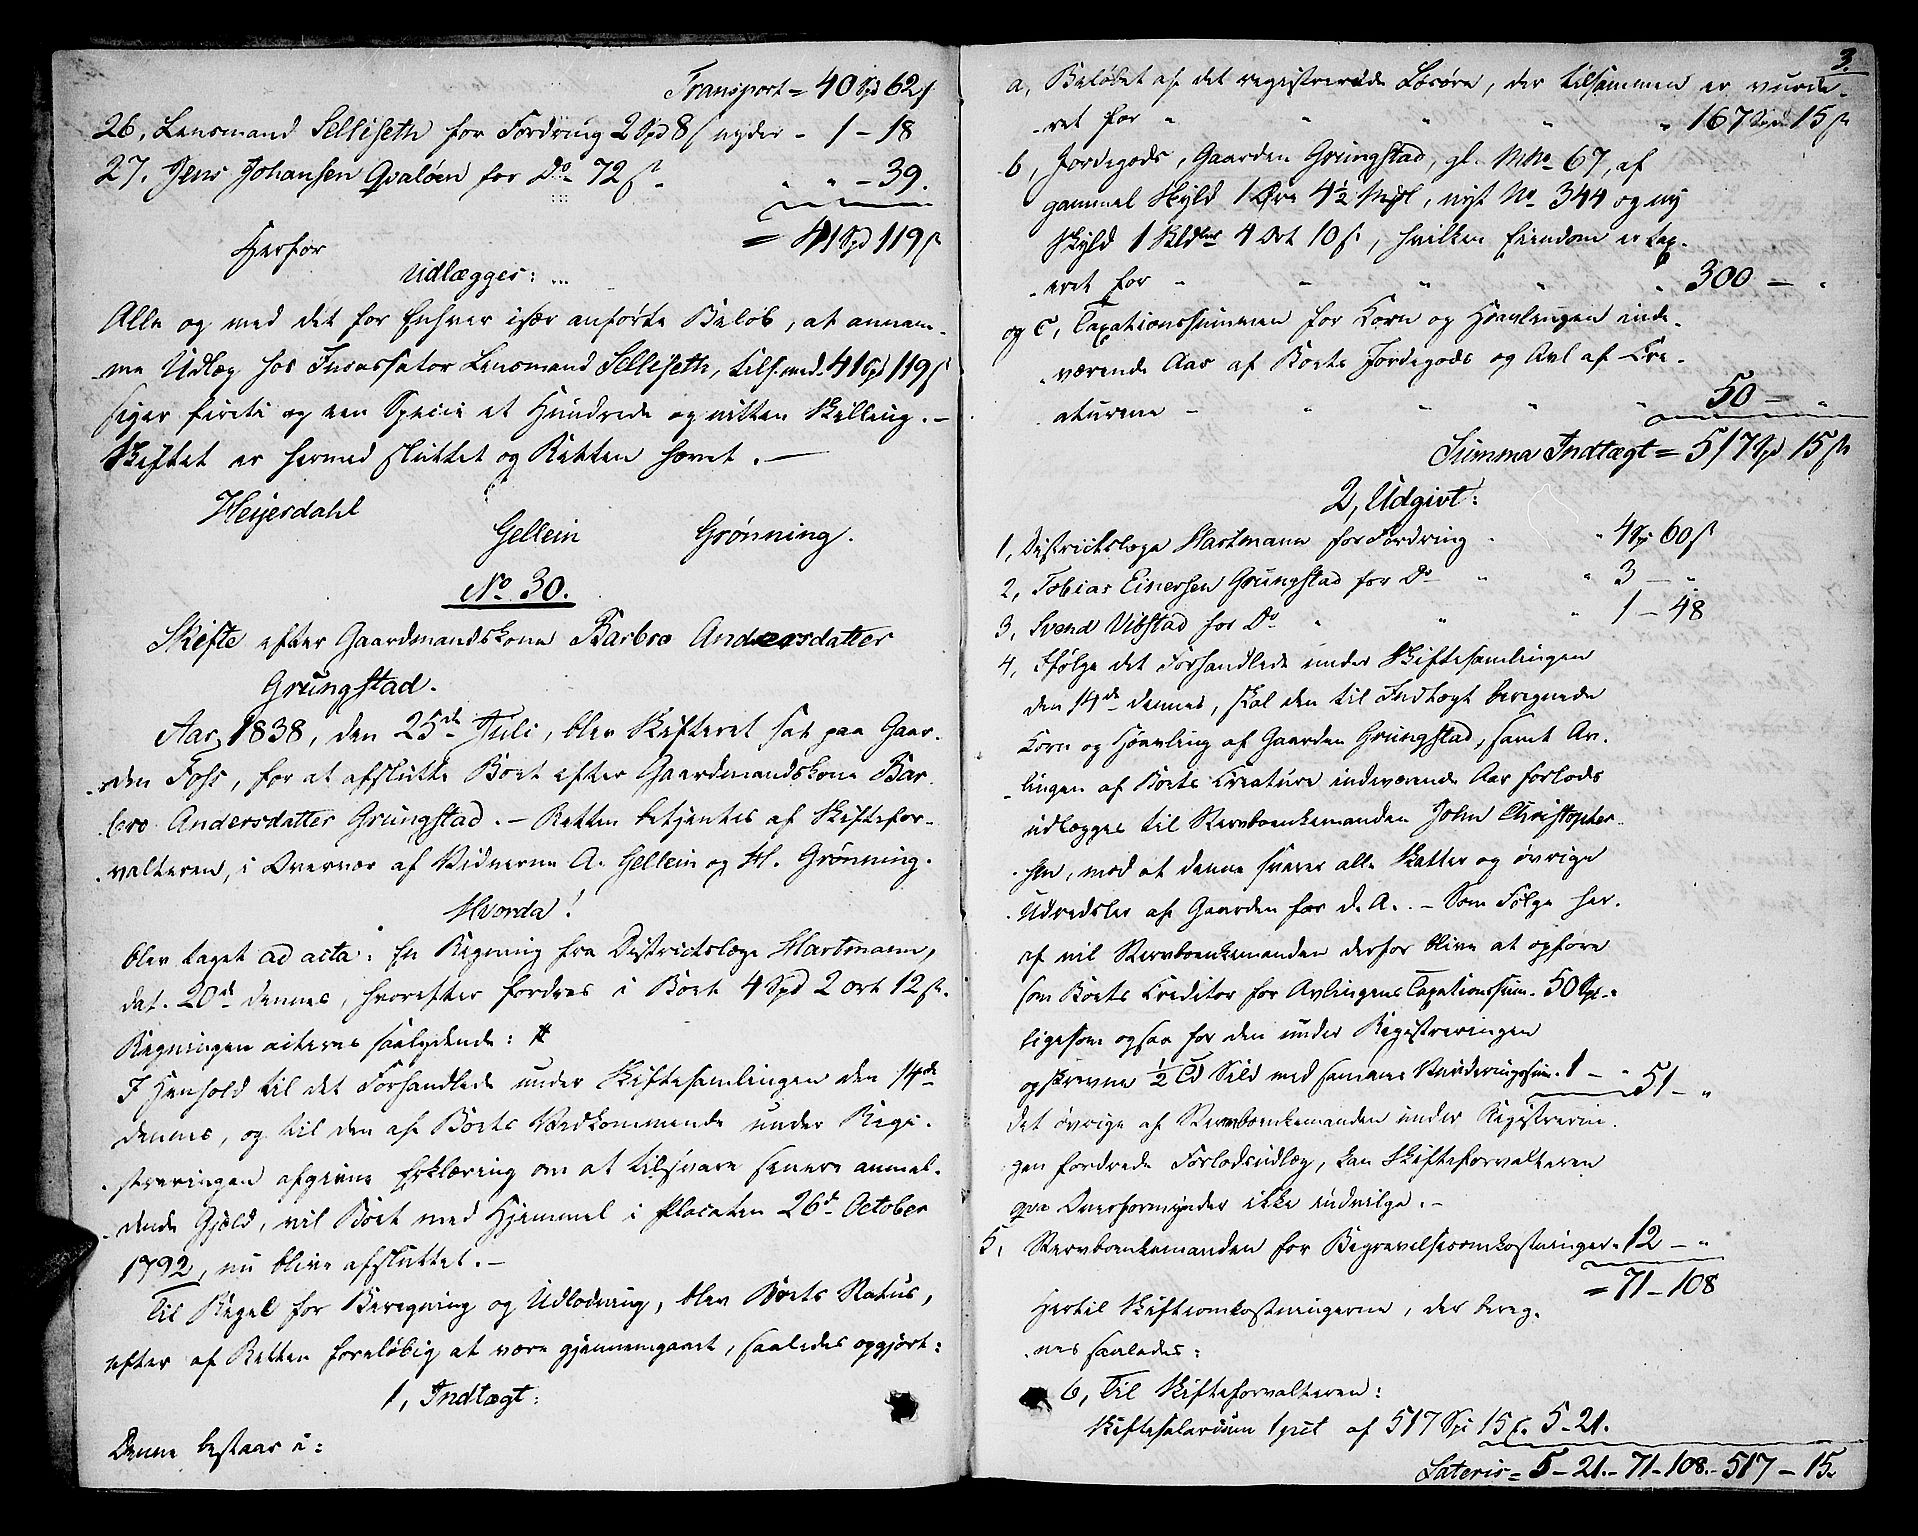 Transport = 40 Spd 62 ſ
26, Lensmand Selliseth for Fordring 2 Spd 8 ſ nyder - 1 - 18
27. Jens Johansen Qvaløen for Do 72 ſs. " " - 39.
= 41 Spd 119 ſs
Herfor
Udlægges: ...
Alle og med det for Enhver især anførte Beløb, at annam-
-me Udlæg hos Incassator Lensmand Selliseth, tils. med 41 Spd 119 ſ
siger firti og een Specie et Hundrede og nitten Skilling. -
Skiftet er hermed sluttet og Retten hævet. -
Heyerdahl
Gellein Grønning.
No 30.
Skifte efter Gaardmandskone Barbro Andersdatter
Grungstad.
Aar 1838, den 25de Juli, blev Skifteret sat paa Gaar-
-den Foss, for at afslutte Boet efter Gaardmandskone Bar-
-bro Andersdatter Grungstad. - Retten betjentes af Skiftefor-
-valteren, i Overvær af Vidnerne A. Gellein og H. Grønning.
Hvorda!
blev taget ad acta: En Regning fra Districtslæge Hartmann,
dat. 20de dennes, hvorefter fordres i Boet 4 Spd 2 ort 12 ſs.
Regningen aiteres saalydende: #
I Henhold til det Forhandlede under Skiftesamlingen den 14de
dennes, og til den af Boets Vedkommende under Regi-
-streringen afgivne Erklæring om at tilsvare senere anmel-
-dende Gjæld, vil Boet med Hjemmel i Placaten 26de October
1792, nu blive afsluttet. -
Til Regel for Beregning og Udlodning, blev Boets Status,
efter af Retten foreløbig at være gjennemgaaet, saaledes opgjort:
1, Indtægt:
Denne bestaar i:
3.
a, Beløbet af det registrerede Løsøre, der tilsammen er vurde-
-ret for " " " " " 167 Spd 15 ſs
b, Jordegods, Gaarden Grungstad, gl. MNo 67, af
gammel Skyld 1 Øre 4 1/2 Mskl, nyt No 344 og ny
Skyld 1 Skldlr 4 Ort 10 ſs, hvilken Eiendom er tax-
-eret for " " " " " 300 - "
og c, Taxationssummen for Korn og Høavlingen inde-
-værende Aar af Boets Jordegods og Avl af Cre-
-aturene - " " " " 50 - "
Summa Indtægt = 517 Spd 15 ſs
2, Udgivt:
1, Districtslæge Hartmann for Fordring " " 4 Sp 60 ſs
2, Tobias Einersen Grungstad for Do " " 3 - "
3, Svend Vibstad for Do " " " 1 - 48
4, Ifølge det Forhandlede under Skiftesamlingen
den 14de dennes, skal den til Indtægt beregnede
Korn og Høavling af Gaarden Grungstad, samt Av-
-lingen af Boets Creature indeværende Aar forlods
udlægges til Stervboenkemanden John Christopher-
-sen, mod at denne svarer alle Skatter og øvrige
Udredsler af Gaarden for d. A. - Som Følge her-
af vil Stervboenkemanden derfor blive at opføre
som Boets Creditor for Avlingens Taxationssum. 50 Sp. "
ligesom ogsaa for den under Registreringen
opskrevne 1/2 Td Sild med samme Vurderingssum. 1 - " 51 - "
det øvrige af Stervboenkemanden under Registrerin-
gen fordrede Forlodsudlæg, kan Skifteforvalteren
qva Overformynder ikke indvilge. -
5, Stervboenkemanden for Begravelsesomkostninger. 12 - "
= 71 - 108
Hertil Skifteomkostningerne, der bereg-
-nes saaledes:
6, Til Skifteforvalteren:
Skiftesalarium 1 prct af 517 Sp 15 ſ. 5 - 21.
Lateris = 5 - 21. - 71 - 108. - 517 - 15.